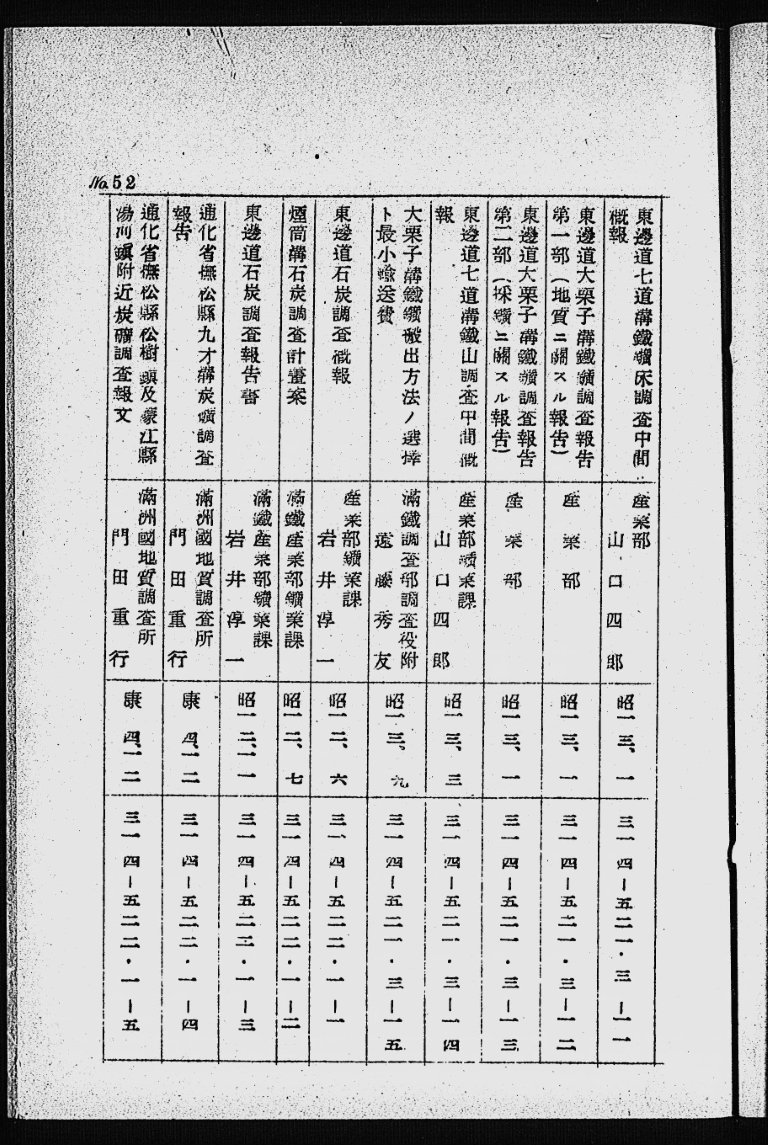 No. 52
東邊道七道溝鐵鑛床調査中間
概報
産業部
山口四郎
昭一三、一
三一四—五二一・三—一一
東邊道大栗子溝鐵鑛調査報告
第一部(地質ニ關スル報告)
産業部
昭一三、一
三一四—五二一・三—一二
東邊道大栗子溝鐵鑛調査報告
第二部(採鑛ニ關スル報告)
産業部
昭一三、一
三一四—五二一・三—一三
東邊道七道溝鐵山調査中間概
報
産業部鑛業課
山口四郎
昭一三、三
三一四—五二一・三—一四
大栗子溝鐵鑛搬出方法ノ選擇
ト最小輸送費
滿鐵調査部調査役附
遠藤秀友
昭一三、九
三一四—五二一・三—一五
東邊道石炭調査概報
産業部鑛業課
岩井淳一
昭一二、六
三一四—五二二・一—一
煙筒溝石炭調査計畫案
滿鐵産業部鑛業課
昭一二、七
三一四—五二二・一—二
東邊道石炭調査報告書
滿鐵産業部鑛業課
岩井淳一
昭一二、一一
三一四—五二二・一—三
通化省撫松縣九才溝炭鑛調査
報告
滿洲國地質調査所
門田重行
康四、一二
三一四—五二二・一—四
通化省撫松縣松樹鎭及濛江縣
湯河鎭附近炭礦調査報文
滿洲國地質調査所
門田重行
康四、一二
三一四—五二二・一—五